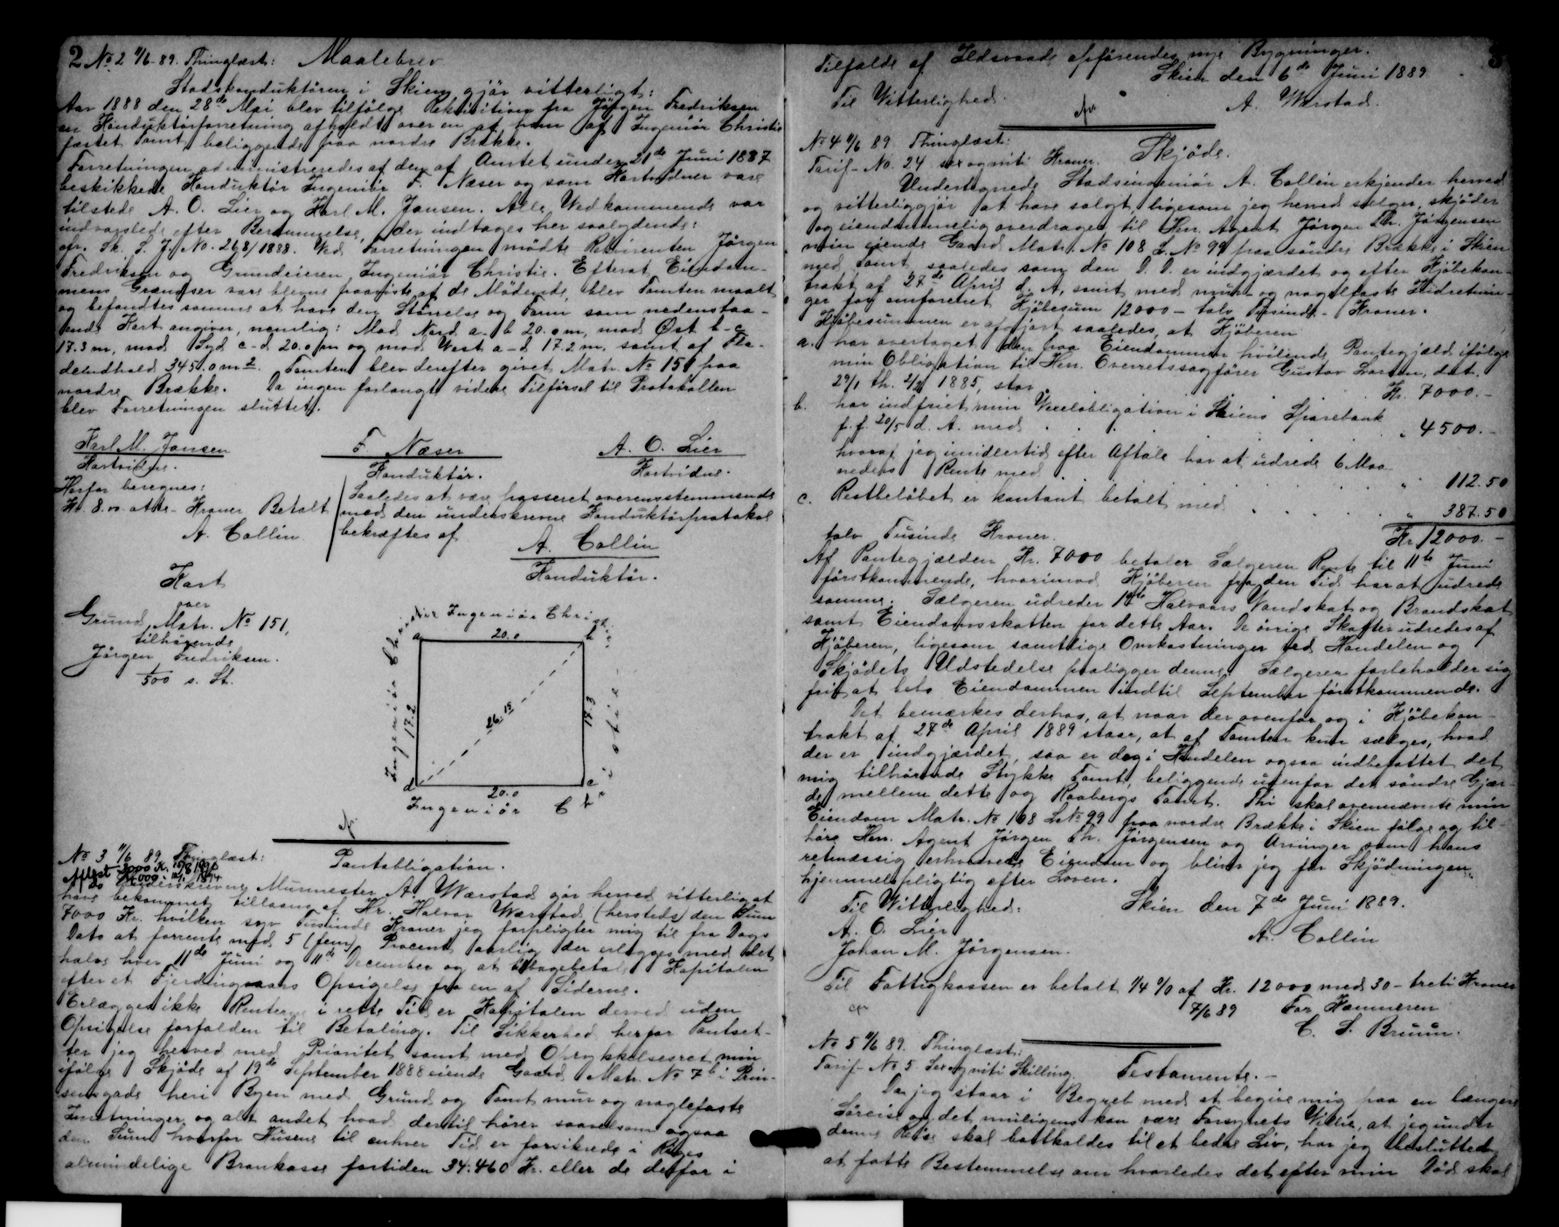 2 No 2 11/6 89. Thinglæst: Maalebrev
Stadskonduktören i Skien gjör vitterligt:
Aar 1888 den 28de Mai blev tilfölge Rekvisition fra Jörgen Fredriksen
en Konduktörforretning afholdt over en af ham af Ingeniör Christie
fæstet Tomt, beliggende paa nordre Brække.
Forretningen administreredes af den af Amtet under 21de Juni 1887
beskikkede Konduktör Ingeniör F. Næser og som Kartvidner vare
tilstede A. O. Lier og Karl M. Jansen. Alle Vedkommende var
indvarslede efter Berammelse, der indtages her saalydende:
cfr. Sk. S. J. No. 268/1888. Ved Forretningen mödte Rekvirenten Jörgen
Fredriksen og Grundeieren, Ingeniör Christie. Efterat Eiendom-
mens Grændser vare blevne paaviste af de Mödende, blev Tomten maalt
og befandtes samme at have den Störrelse og Form som nedenstaa-
ende Kart angiver, nemlig: Mod Nord a-b 20.0 m, mod Öst b-c
17.3 m, mod Syd c-d 20.0 m og mod Vest a-d 17.2 m, samt af Fla-
deindhold 345.0 m2. Tomten blev derefter givet Matr. No 151 paa
nordre Brække. Da ingen forlangte videre Tilförsel til Protokollen
blev Forretningen sluttet.
Karl M. Jansen F Næser A. O. Lier
Kartvidne. Konduktör. Kartvidne.
Herfor beregnes:
Kr. 8.00 otte Kroner Betalt
A. Collin
Saaledes at være passeret overensstemmende
med den underskrevne Konduktörprotokol
bekræftes af
A. Collin
Konduktör.
Kart
over
Grund, Matr. No 151,
tilhörende
Jörgen Fredriksen.
1/500 n. St.
Ingeniör Christie
a 20.0 b
Ingeniör Christie
17.2
26.15
17.3
d 20.0 c
Ingeniör C
No 3 11/6 89. Thinglæst: Pantobligation.
Aflæst
Underskrevne Murmester A. Wærstad gör herved vitterligt at
have bekommet tillaans af Hr. Halvor Wærstad (hersteds) den Sum
7000 Kr. hvilken syv Tusinde Kroner jeg forpligter mig til fra Dags
Dato at forrente med 5 (fem) Procent aarlig der erlægges med det
halve hver 11te Juni og 11te December og at tilbagebetale Kapitalen
efter et Fjerdingaars Opsigelse fra en af Siderne.
Erlægges ikke Renterne i rette Tid er Kapitalen derved uden
Opsigelse forfalden til Betaling. Til Sikkerhed herfor Pantset-
ter jeg herved med Prioritet samt med Oprykkelsesret min
ifölge Skjöde af 19de September 1888 eiende Gaard Matr. No 7b i Prin-
sensgade heri Byen med Grund og Tomt mur og naglefaste
Indretninger og alt andet hvad dertil hörer saavelsom ogsaa
den Sum hvorfor Husene til enhver Tid er forsikrede i Riges
almindelige Brankasse fortiden 34.460 Kr. eller de derfor i
Tilfælde af Ildsvaade opförendes nye Bygninger.
Skien den 6te Juni 1889
Til Vitterlighed. A. Wærstad.
No 4 11/6 89 Thinglæst:
Tarif-No. 24 sex og niti Kroner. Skjöde.
Undertegnede Stadsingeniör A. Collin erkjender herved
og vitterliggjör at have solgt, ligesom jeg herved sælger, skjöder
og eiendommelig overdrager til Hr. Agent Jörgen Th. Jörgensen
min eiende Gaard Matr. No 108 L. No 99 paa söndre Brække i Skien
med Tomt saaledes som den D. D. er indgjærdet og efter Kjöbekon-
trakt af 27de April d. A. samt med mur og nagelfaste Indretnin-
ger for omforenet Kjöbesum 12000 - tolv Tusinde - Kroner.
Kjöbesummen er afgjort saaledes, at Kjöberen
a. har overtaget den paa Eiendommen hvilende Pantegjæld ifölge
min Obligation til Hrr. Overretssagförer Gustav Larsen, dat.
29/1 th. 2/2 1885, stor . . . Kr. 7000.-
b. har indfriet min Vexelobligation i Skiens Sparebank
p. f. 20/5 d. A. med . . . " 4500.-
hvoraf jeg imidlertid efter Aftale har at udrede 6 Maa-
neders Rente med . . . " 112.50
c. Restbelöbet er kontant betalt med . . . " 387.50
tolv Tusinde Kroner. Kr. 12000.-
Af Pantegjælden Kr. 7000 betaler Sælgeren Rente til 11te Juni
förstkommende, hvorimod Kjöberen fra den Tid har at udrede
samme. Sælgeren udreder 1ste Halvaars Vandskat og Brandskat
samt Eiendomsskatten for dette Aar. De övrige Skatter udredes af
Kjöberen, ligesom samtlige Omkostninger ved Handelen og
Skjödets Udstedelse paaligger denne. Sælgeren forbeholder sig
frit at bebo Eiendommen indtil September förstkommende.
Det bemærkes derhos, at naar der ovenfor og i Kjöbekon-
trakt af 27de April 1889 staar, at af Tomten kun sælges, hvad
der er indgjærdet, saa er dog i Handelen ogsaa indbefattet det
mig tilhörende Stykke Tomt, beliggende udenfor det söndre Gjær-
de mellem dette og Raabergs Tomt. Thi skal ovennævnte min
Eiendom Matr. No 108 L. No 99 paa nordre Brække i Skien fölge og til-
höre Hrr. Agent Jörgen Th. Jörgensen og Arvinger som hans
retmæssig erhvervede Eiendom og bliver jeg for Skjödningen
hjemmelspligtig efter Loven.
Til Vitterlighed: Skien den 7de Juni 1889.
A. O. Lier A. Collin
Johan M. Jörgensen.
Til Fattigkassen er betalt 1/4 % af Kr. 12000 med 30 - treti Kroner
7/6 89 For Kæmneren
C. S. Bruun.
No 5 11/6 89. Thinglæst:
Tarif-No 5 Sex og niti Skilling. Testamente.-
Da jeg staar i Begreb med at begive mig paa en længere
Söreise og det muligens kan være Forsynets Villie, at jeg under
denne Reise skal bortkaldes til et bedre Liv, har jeg besluttet
at fatte Bestemmelse om hvorledes det efter min Död skal